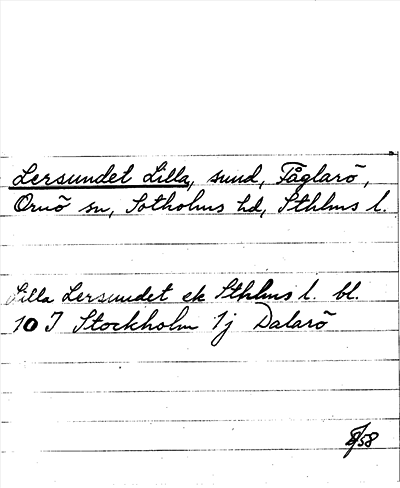 Lersundet Lilla, sund, Fåglarö,
Ornö sn, Sotholms hd, Sthlms l.
Lilla Lersundet ek Sthlms l. bl.
10 I Stockholm 1j Dalarö
58